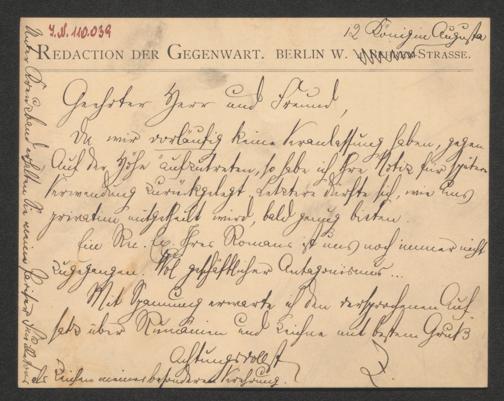 J.N. 110.039
12 Königin Augusta
REDACTION DER GEGENWART. BERLIN W. STRASSE.
Geehrter Herr und Freund,
Da wir vorläufig keine Veranlassung haben, gegen
"Auf der Höhe" aufzutreten, so habe ich Ihre Notiz für spätere
Verwendung zurückgelegt. Letztere dürfte sich, wie uns
privatim mitgetheilt wird, bald genug bieten.
Ein Rec. Ex. Ihres Romans ist uns noch immer nicht
zugegangen. Wol geschäftlicher Antagonismus...
Mit Spannung erwarte ich den versprochenen Auf-
satz über Rumänien und zeichne mit bestem Gruß
Achtungsvollst
Z.
Unter Kreuzband erhalten Sie meinen Pariser
als Zeichen meiner besonderen Verehrung.